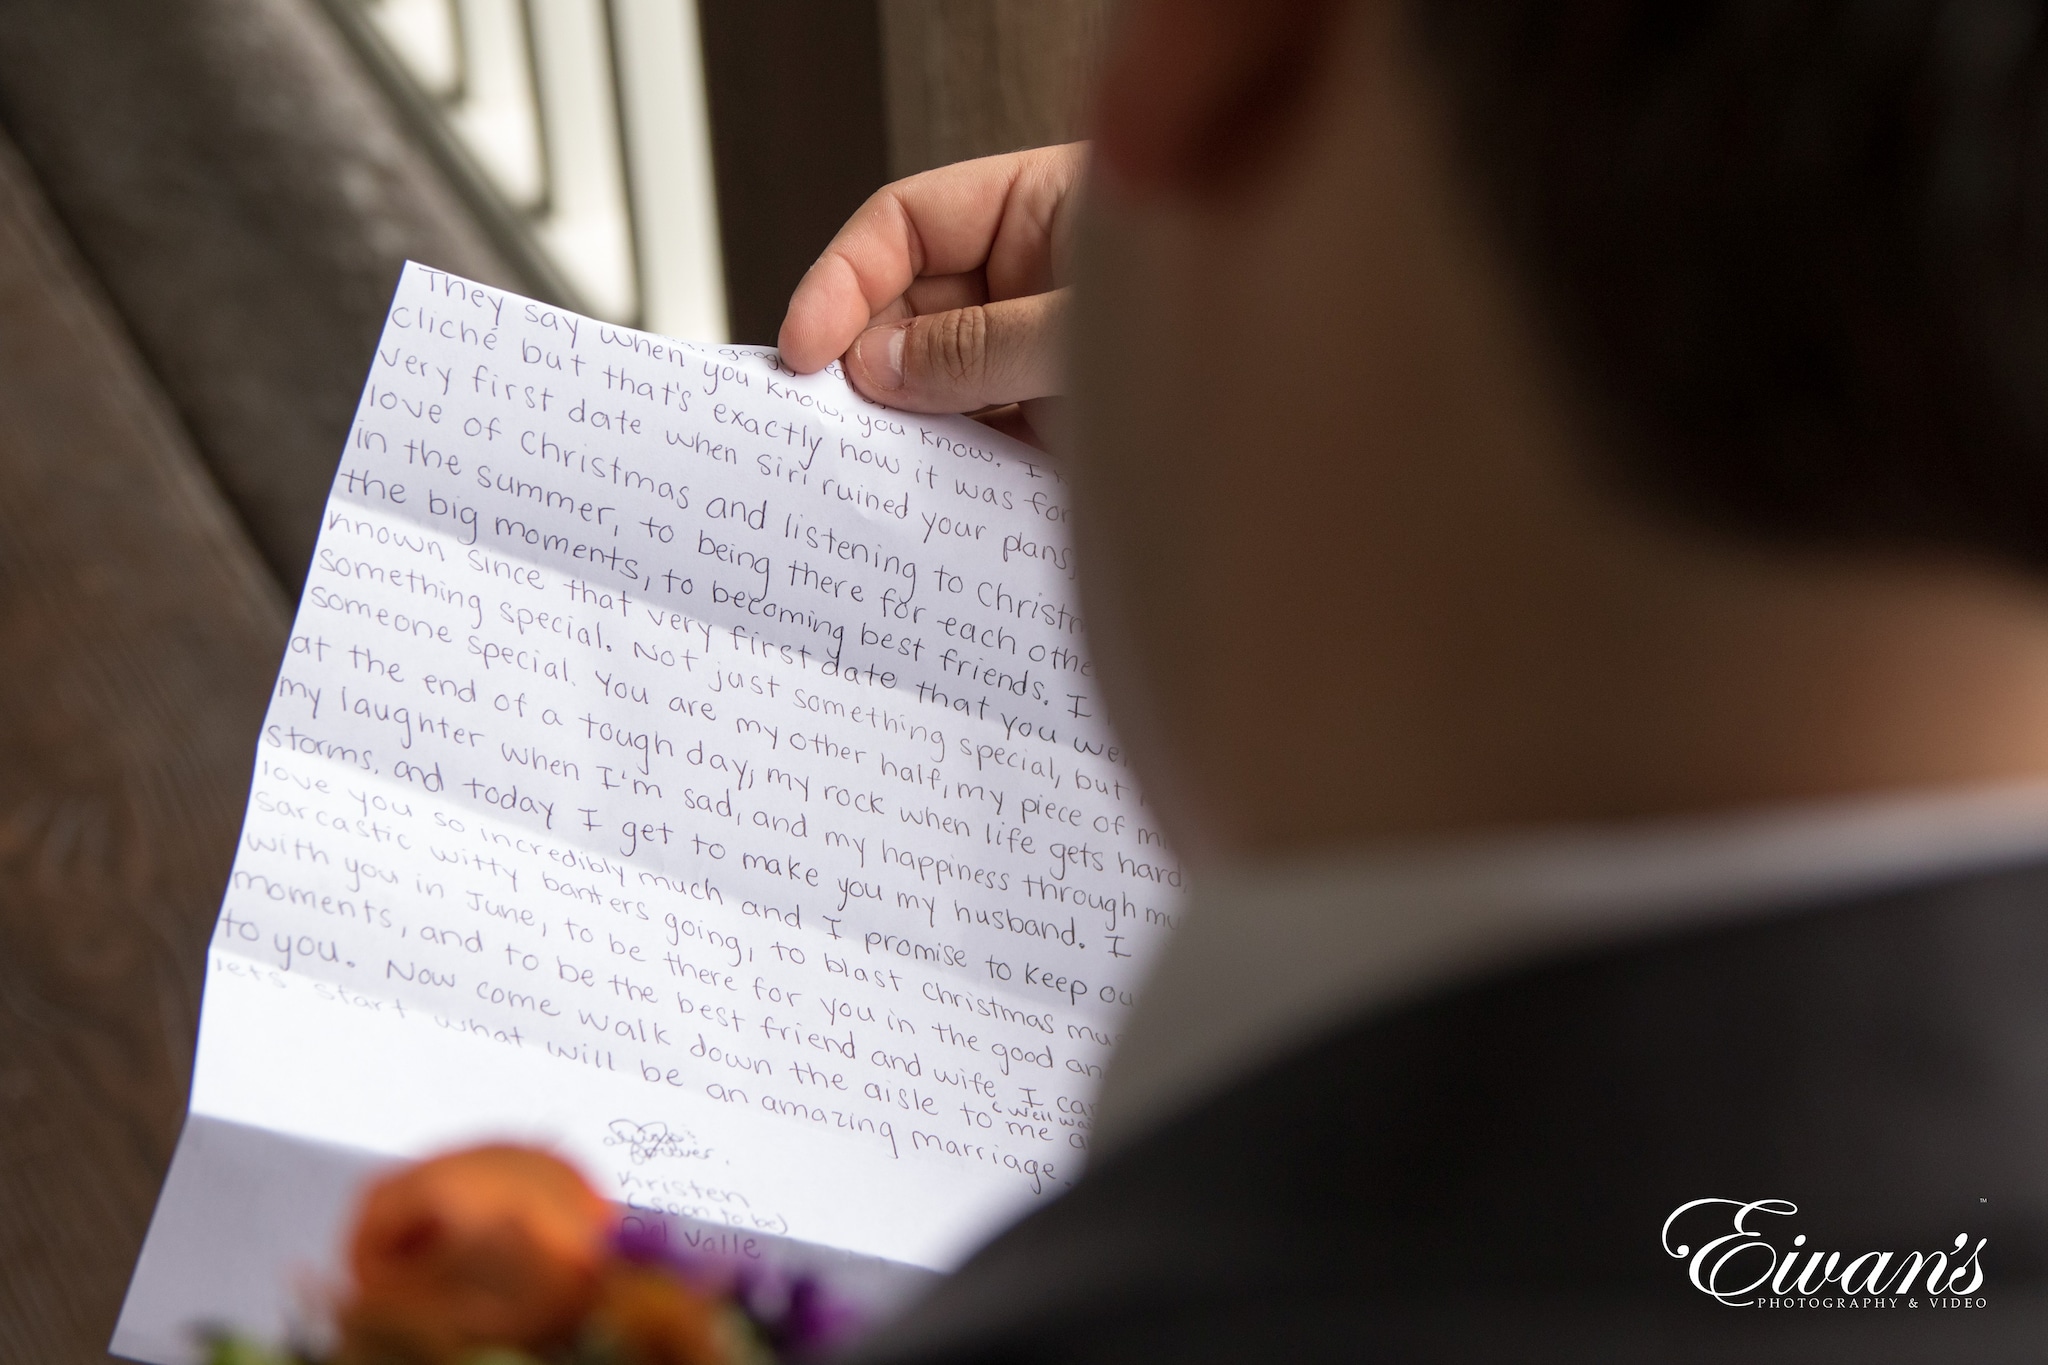 They say when you know, you know. I
cliché but that's exactly how it was for
very first date when Siri ruined your plans,
love of Christmas and listening to Christm
in the summer, to being there for each othe
the big moments, to becoming best friends. I
known since that very first date that you we
something special. Not just something special, but
someone special. You are my other half, my piece of m
at the end of a tough day, my rock when life gets hard,
my laughter when I'm sad, and my happiness through my
storms, and today I get to make you my husband. I
love you so incredibly much and I promise to keep ou
sarcastic witty banters going, to blast Christmas mus
with you in June, to be there for you in the good an
moments, and to be the best friend and wife I can
to you. Now come walk down the aisle to me a
(well wa
lets start what will be an amazing marriage.
forever.
Kristen
(soon to be)
Del Valle
Eivan's ™
PHOTOGRAPHY & VIDEO